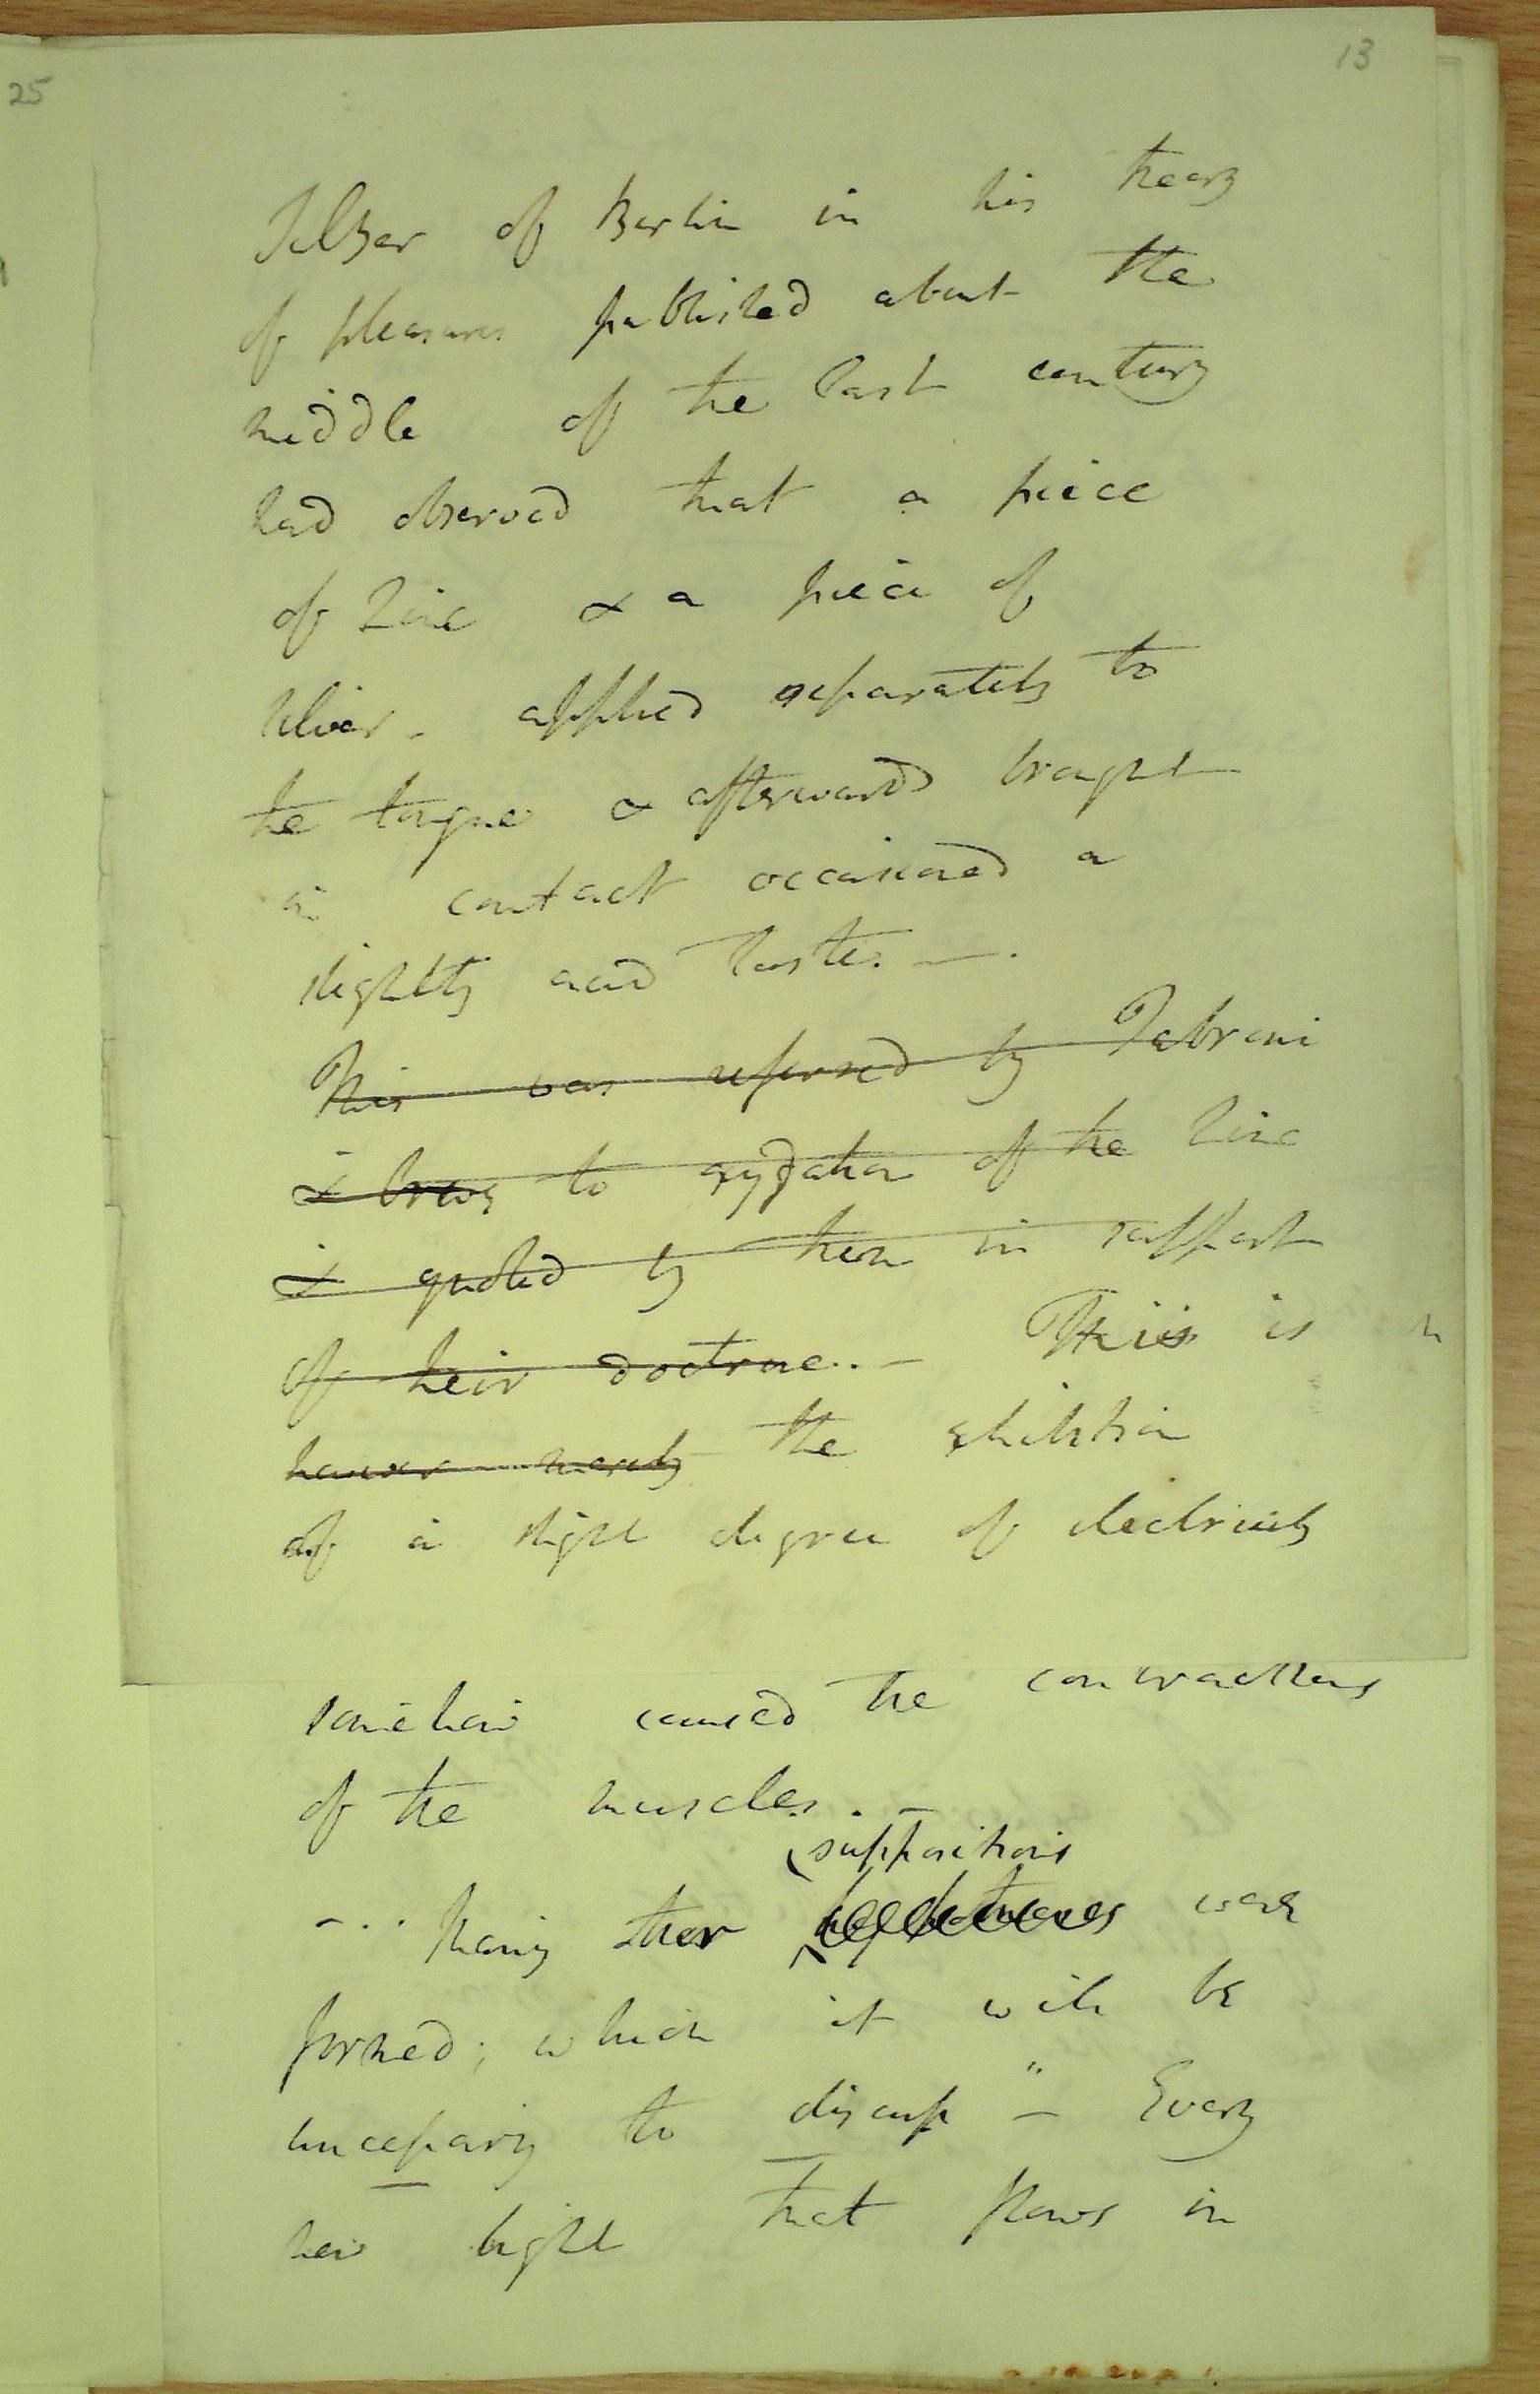 25
13
Sulzer of Berlin in his theory
of pleasures published about the
middle of the last century
had observed that a piece
of Zinc & a piece of
silver - applied separately to
the tongue & afterwards brought
in contact occasioned a
slightly acid taste. —.
This was referred by Fabroni
& to oxydation of the Zinc
& quoted by them in support
of their doctrine. — This is
however merely the exhibition
of a slight degree of electricity
somehow caused the contractions
of the muscles. —
suppositions
-.. Many other were
formed; which it will be
unnecessary to discuss — Every
new light that flows in